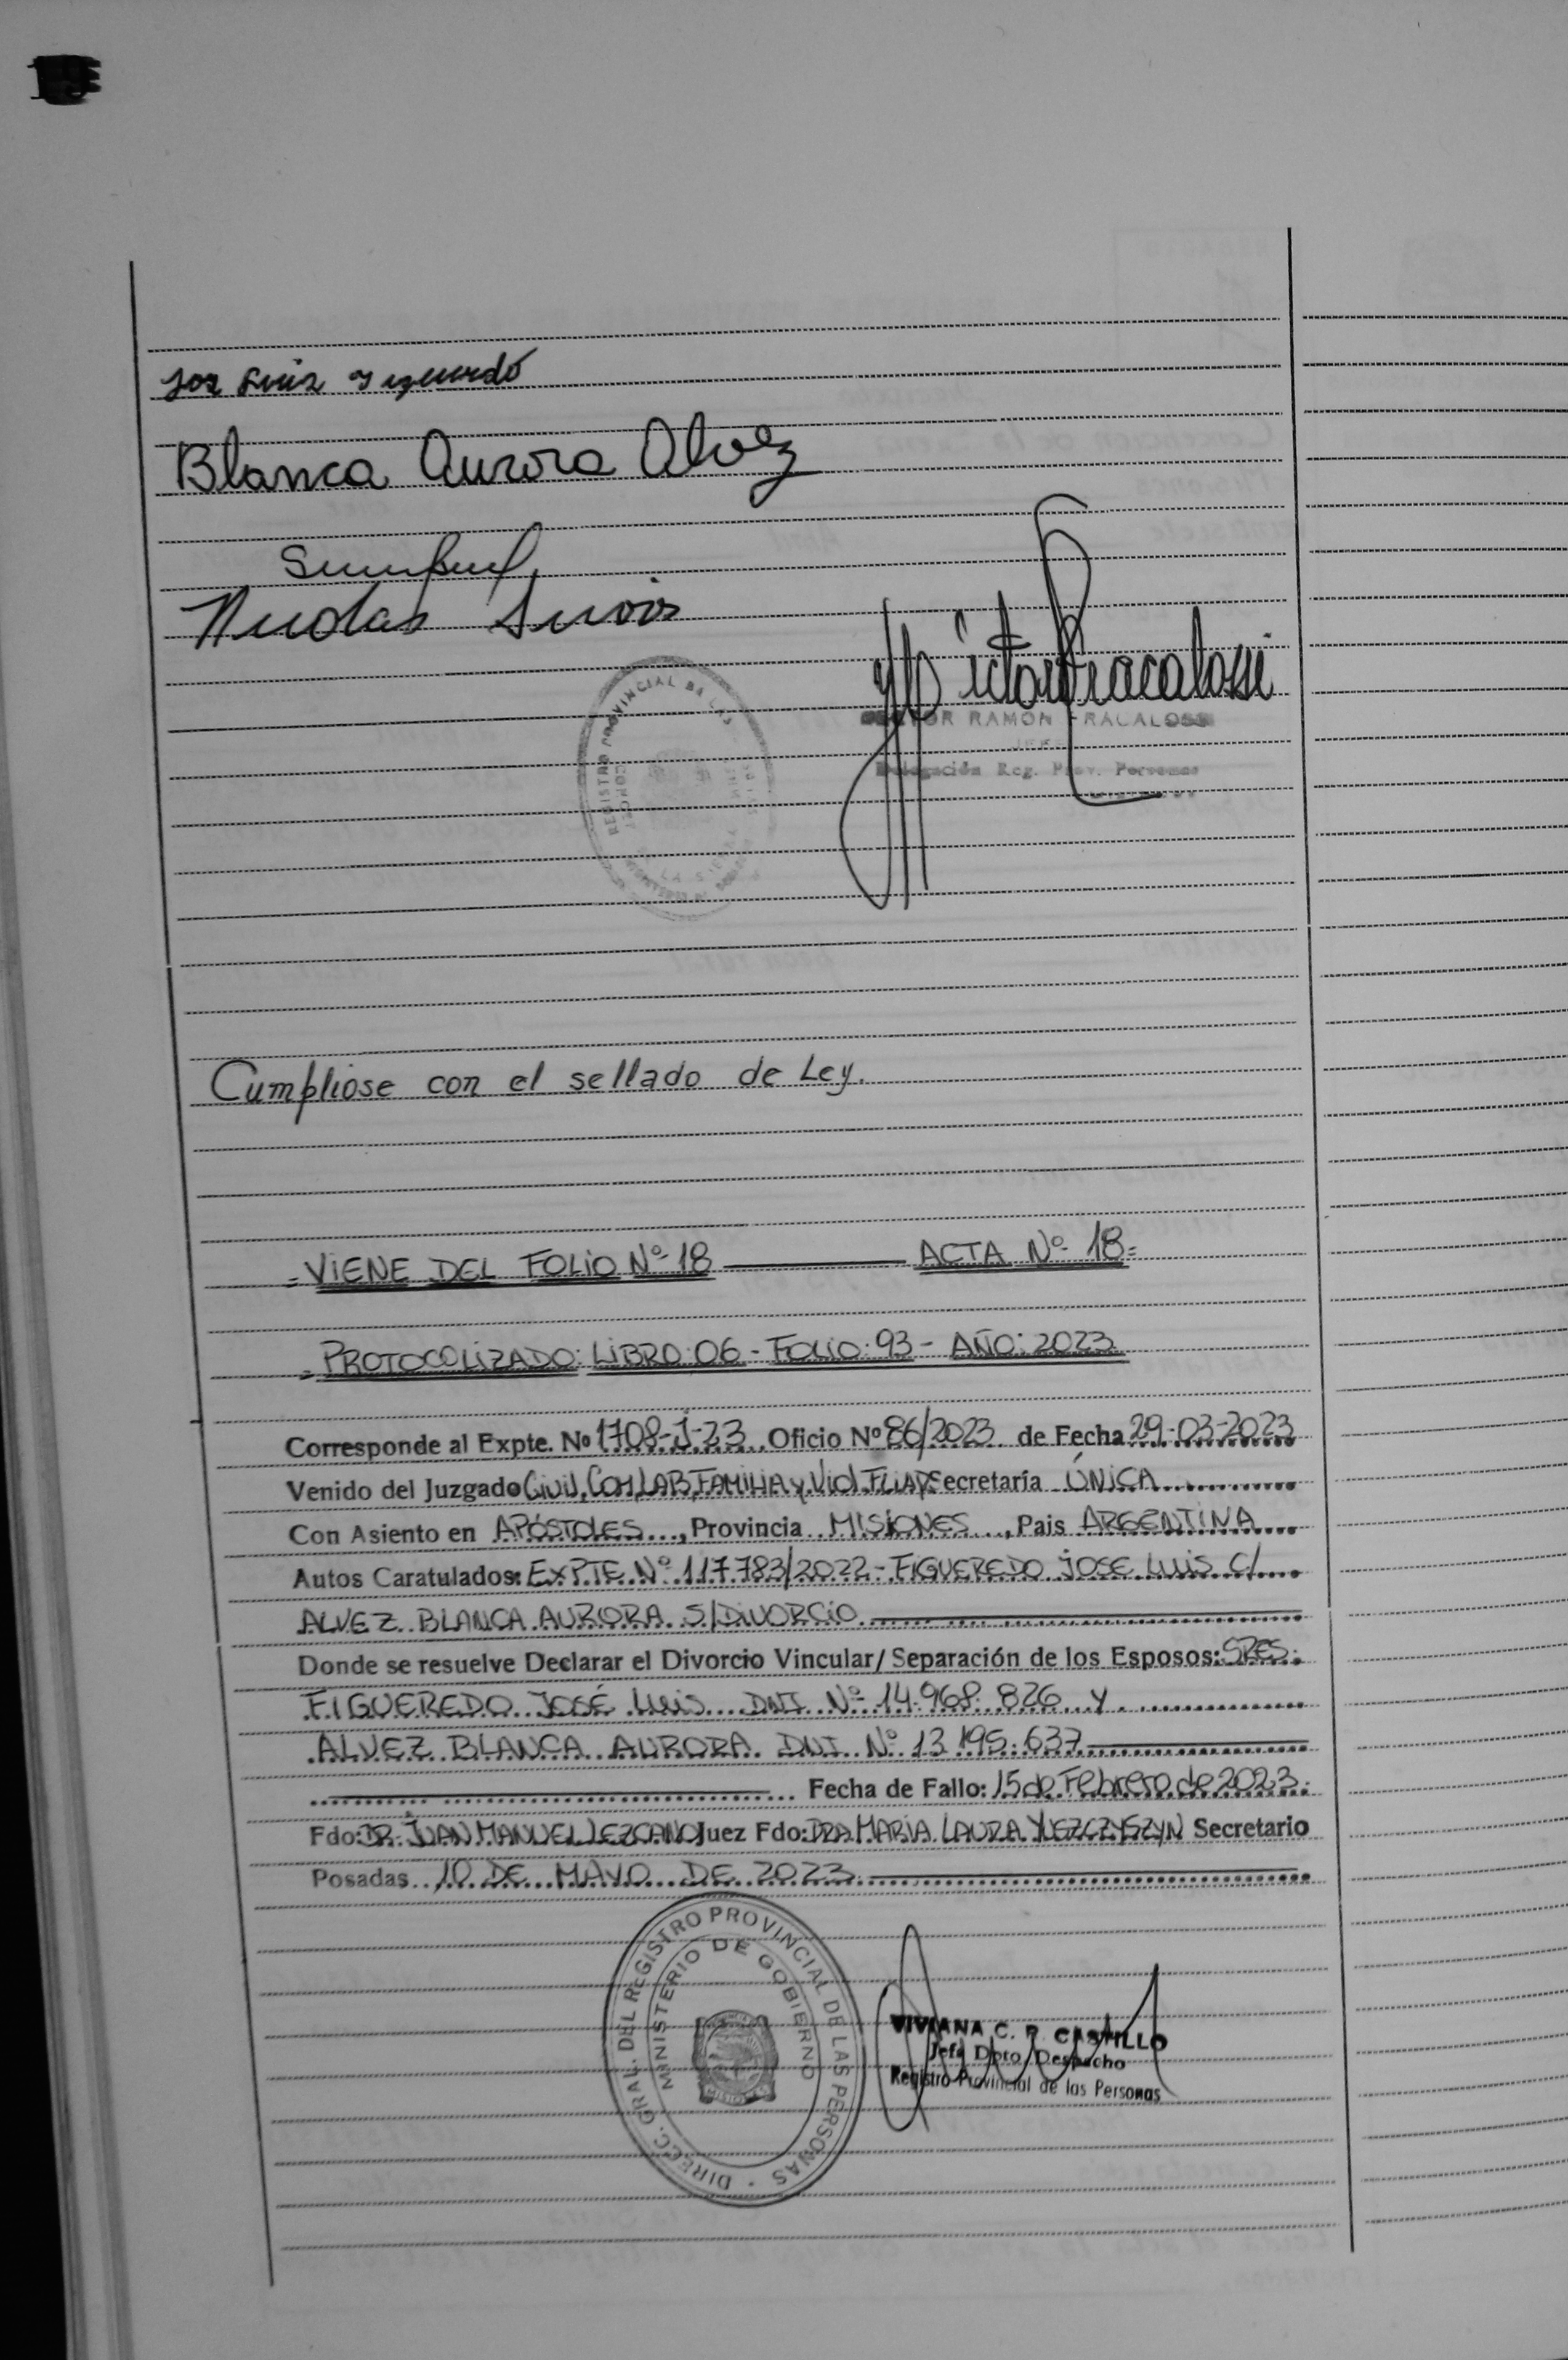 Jose Luis Figueredo
Blanca Aurora Alvez
Nicolas
Victor Fracalossi
RAMON FRACALOSSI
JEFE
Delegación Reg. Prov. Personas
REGISTRO PROVINCIAL DE LAS
Cumpliose con el sellado de Ley.
= VIENE DEL FOLIO Nº 18 ——— ACTA Nº 18=
= PROTOCOLIZADO: LIBRO: 06 - FOLIO: 93 - AÑO: 2023
Corresponde al Expte. Nº 1708-J-23 Oficio Nº 86/2023 de Fecha 29-03-2023
Venido del Juzgado Civil, Com, LAB, FAMILIA y Viol FLIAR Secretaría ÚNICA
Con Asiento en APÓSTOLES, Provincia MISIONES, Pais ARGENTINA
Autos Caratulados: EXPTE Nº 117.783/2022 - FIGUEREDO JOSE LUIS C/
ALVEZ BLANCA AURORA S/DIVORCIO
Donde se resuelve Declarar el Divorcio Vincular/ Separación de los Esposos: SRES:
FIGUEREDO JOSÉ LUIS DNI Nº 14.968.826 y
ALVEZ BLANCA AURORA DNI Nº 13.195.637
Fecha de Fallo: 15 de Febrero de 2023.
Fdo: DR. JUAN MANUEL LEZCANO Juez Fdo: DRA MARIA LAURA YUSZCZYSZYN Secretario
Posadas 10 DE MAYO DE 2023
DIREC. GRAL. DEL REGISTRO PROVINCIAL DE LAS PERSONAS
MINISTERIO DE GOBIERNO
VIVIANA C. R. CASTILLO
Jefa Dpto. Despacho
Registro Provincial de las Personas